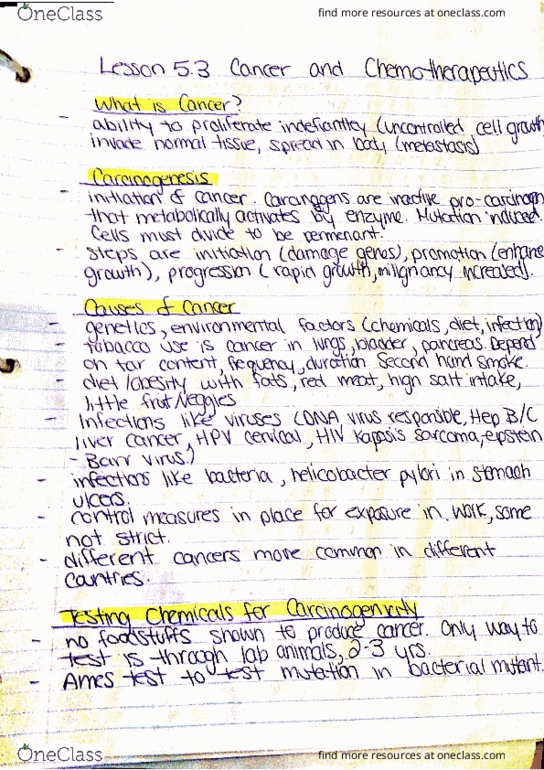 OneClass find more resources at oneclass.com
Lesson 5.3 Cancer and Chemotherapeutics
What is Cancer?
- ability to proliferate indefiantley (uncontrolled cell growth
invade normal tissue, spread in body (metastasis)
Carcinogenesis
- initiation of cancer. Carcanogens are inactive pro-carcinogen
that metabolically activates by enzyme. Mutation induced.
Cells must divide to be permenant.
- steps are initiation (damage genes), promotion (enhance
growth), progression (rapid growth, milignancy increased).
Causes of Cancer
- genetics, environmental factors (chemicals, diet, infection)
- tobacco use is cancer in lungs, bladder, pancreas. Depend
on tar content, frequency, duration. Second hand smoke.
- diet/obesity with fats, red meat, high salt intake,
little fruit/veggies
- Infections like viruses (DNA virus responsible, Hep B/C
liver cancer, HPV cervical, HIV kaposis sarcoma, epstein
- Barr virus.)
- infections like bacteria, helicobacter pylori in stomach
ulcers.
- control measures in place for exposure in work, some
not strict.
- different cancers more common in different
countries.
Testing Chemicals for Carcinogenicity
- no foodstuffs shown to produce cancer. Only way to
test is through lab animals, 2-3 yrs.
- Ames test to test mutation in bacterial mutant.
OneClass find more resources at oneclass.com